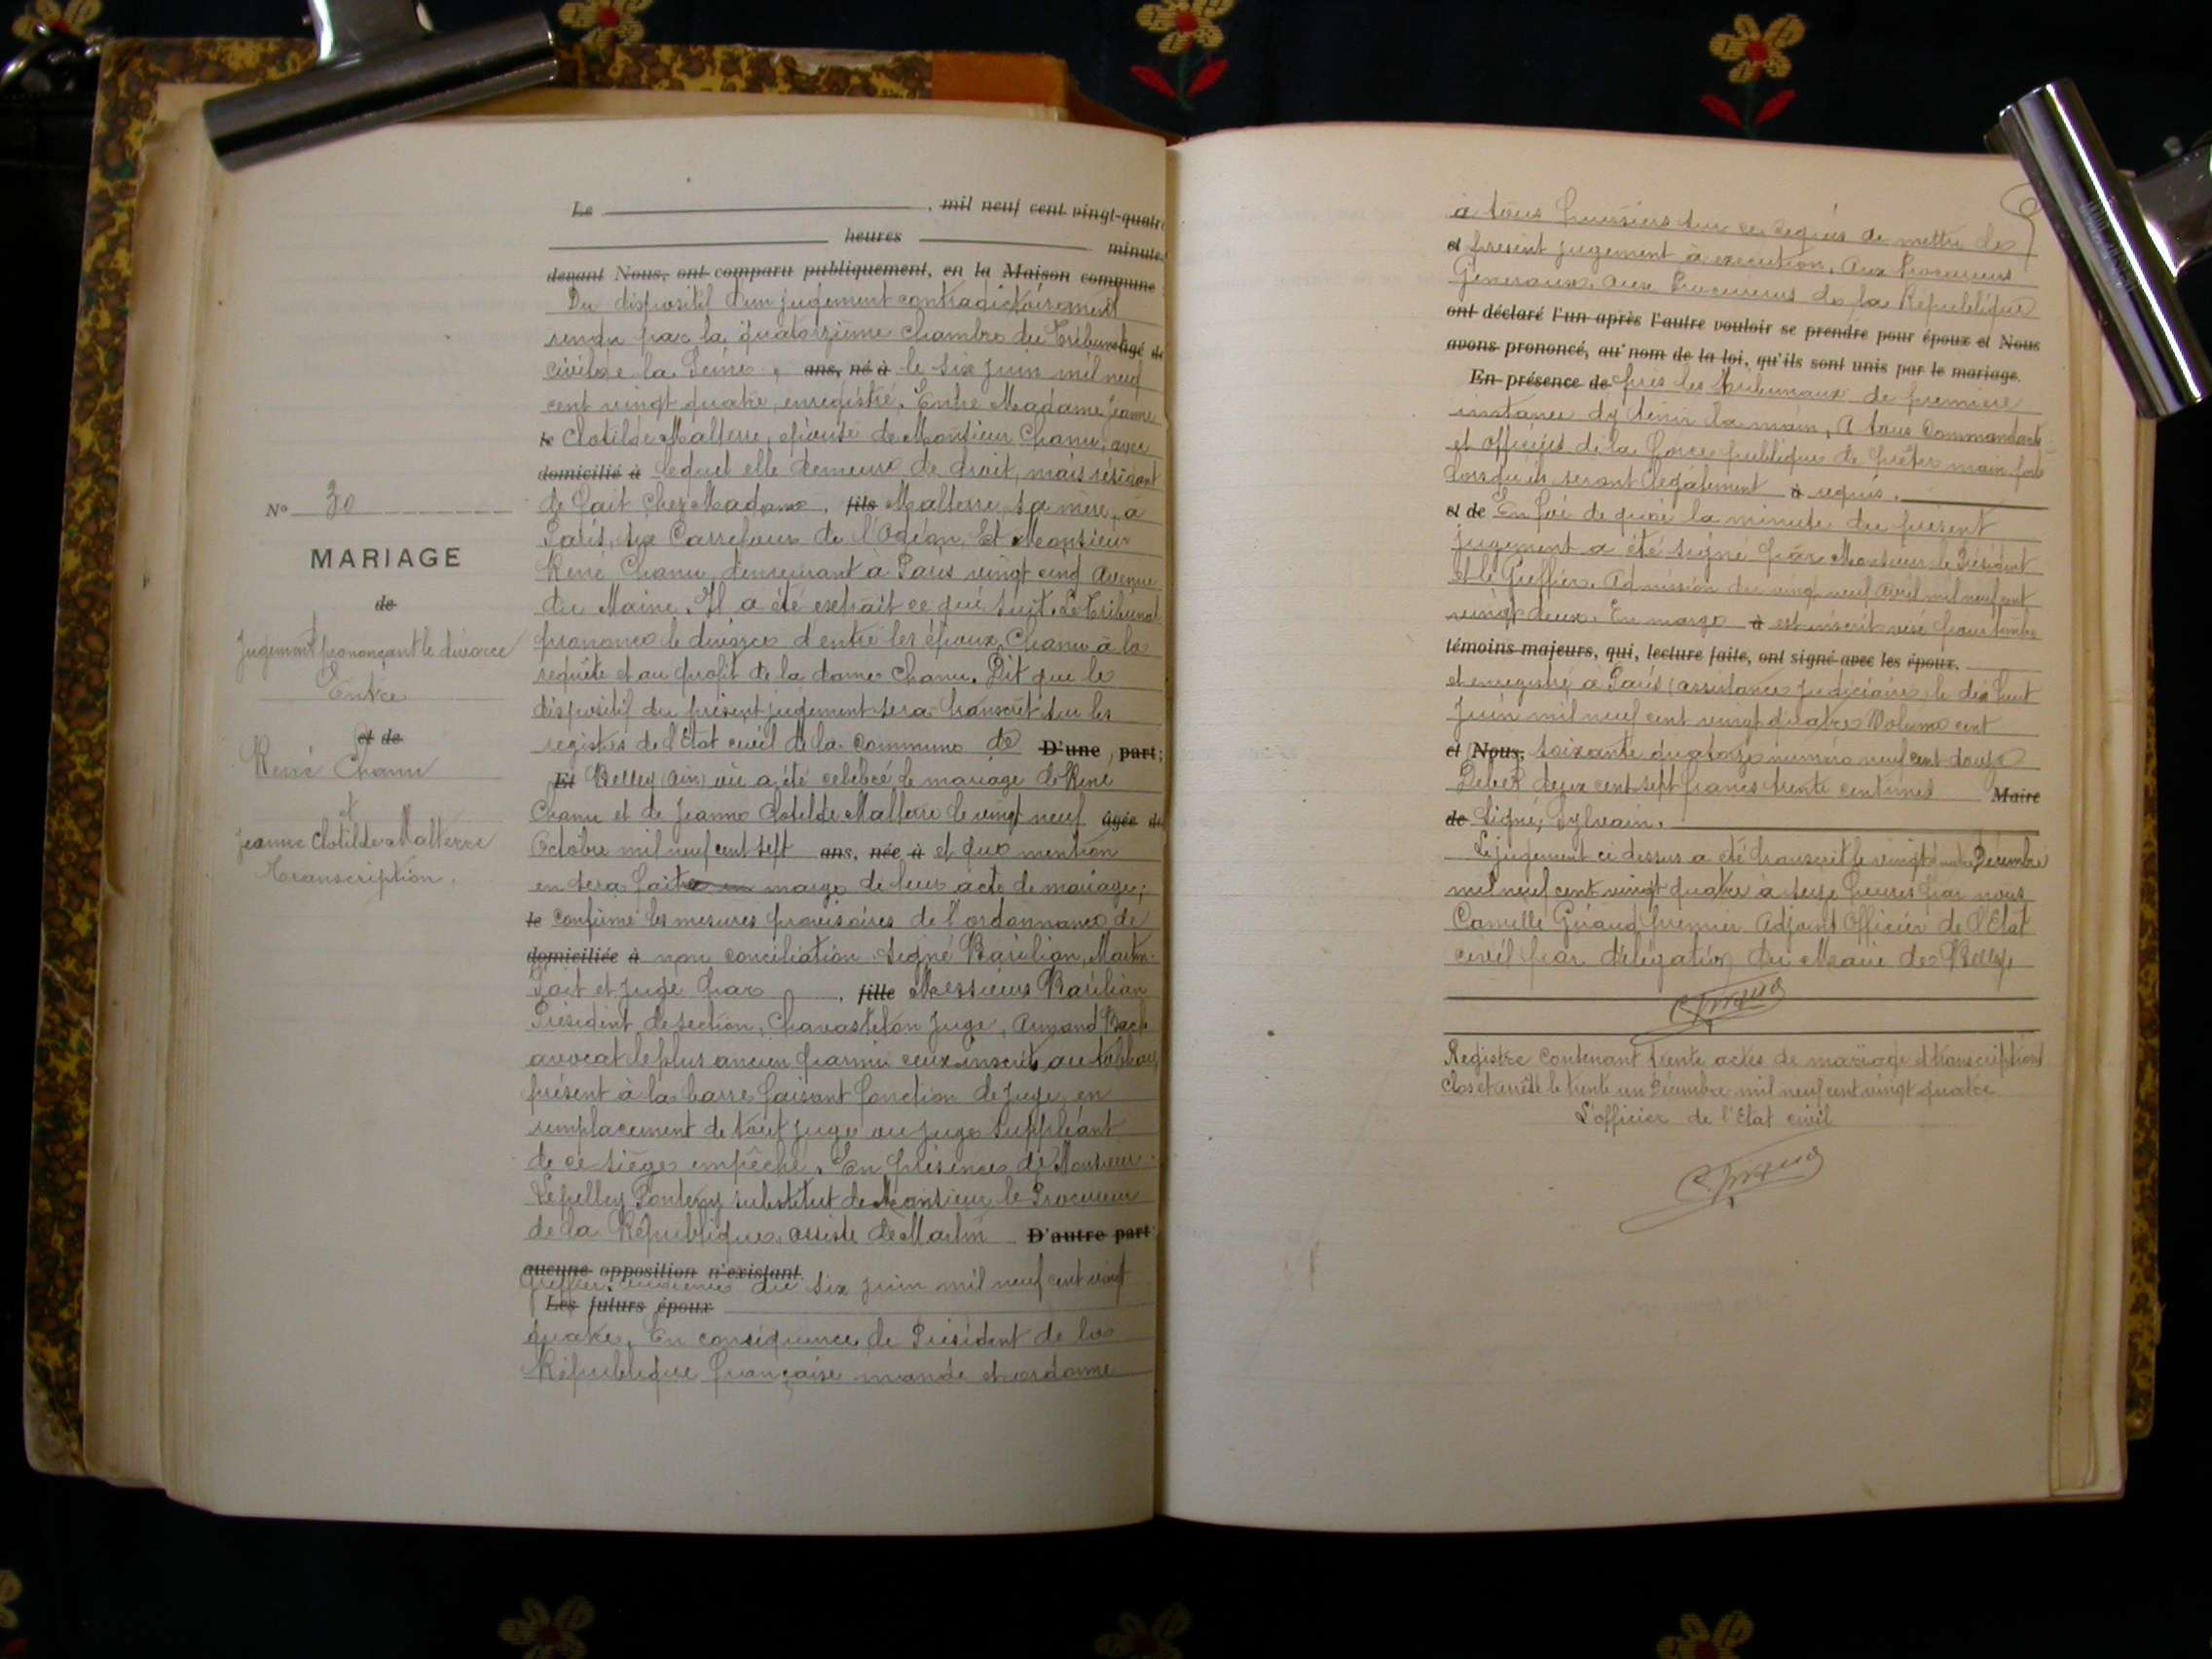 Le , mil neuf cent vingt-quatre
heures minutes
devant Nous, ont comparu publiquement, en la Maison commune :
Du dispositif d'un jugement contradictoirement
rendu par la quatorzième chambre du Tribunal âgé de
civil de la Seine, ans, né à le six juin mil neuf
cent vingt quatre, enregistré. Entre Madame Jeanne
le Clotilde Malterre, épouse de Monsieur Chanu, avec
domicilié à lequel elle demeure de droit, mais résidant
de fait chez Madame, fils Malterre, sa mère, à
Paris, six Carrefour de l'Odéon, Et Monsieur
René Chanu, demeurant à Paris vingt cinq Avenue
du Maine. Il a été extrait ce qui suit. Le Tribunal
prononce le divorce d'entre les époux Chanu à la
requête et au profit de la dame Chanu. Dit que le
dispositif du présent jugement sera transcrit sur les
registres de l'Etat civil de la commune de D'une part ;
Et Belley (Ain) où a été célébré le mariage de René
Chanu et de Jeanne Clotilde Malterre le vingt neuf âgée de
Octobre mil neuf cent sept ans, née à et que mention
en sera faite en marge de leur acte de mariage ;
le confirme les mesures provisoires de l'ordonnance de
domiciliée à non conciliation. Signé Barilian, Martin.
Fait et jugé par , fille Messieurs Barilian
Président de section, Chavastelon Juge, Armand Bach
avocat le plus ancien parmi ceux inscrits au tableau,
présent à la barre faisant fonction de juge en
remplacement de tout juge ou juge suppléant
de ce siège empêché. En présence de Monsieur
Lepelley Fonteny substitut de Monsieur le Procureur
de la République, assisté de Martin D'autre part ;
aucune opposition n'existant.
Greffier. du six juin mil neuf cent vingt
Les futurs époux
quatre. En conséquence le Président de la
République française mande et ordonne
No 30
MARIAGE
de
Jugement prononçant le divorce
Entre
et de
René Chanu
et
Jeanne Clotilde Malterre
Transcription.
à tous huissiers sur ce requis de mettre le
et présent jugement à exécution. Aux Procureurs
Généraux, aux Procureurs de la République
ont déclaré l'un après l'autre vouloir se prendre pour époux et Nous
avons prononcé, au nom de la loi, qu'ils sont unis par le mariage.
En présence de près les Tribunaux de première
instance d'y tenir la main, A tous Commandants
et officiers de la force publique de prêter main forte
lorsqu'ils seront légalement à requis.
et de En foi de quoi la minute du présent
jugement a été signé par Monsieur le Président
et le Greffier. Admission du vingt neuf Avril mil neuf cent
vingt deux. En marge à est inscrit visé pour timbre
témoins majeurs, qui, lecture faite, ont signé avec les époux.
et enregistré à Paris (assistance judiciaire) le dix huit
Juin mil neuf cent vingt quatre Volume cent
et Nous, soixante quatorze numéro neuf cent douze
Débet deux cent sept francs trente centimes Maire
de Signé, Sylvain.
Le jugement ci dessus a été transcrit le vingt Décembre
mil neuf cent vingt quatre à seize heures par nous
Camille Giraud premier Adjoint Officier de l'Etat
civil par délégation du Maire de Belley
C. Giraud
Registre contenant trente actes de mariage et transcriptions
Clos et arrêté le trente un Décembre mil neuf cent vingt quatre
L'officier de l'Etat civil
C. Giraud